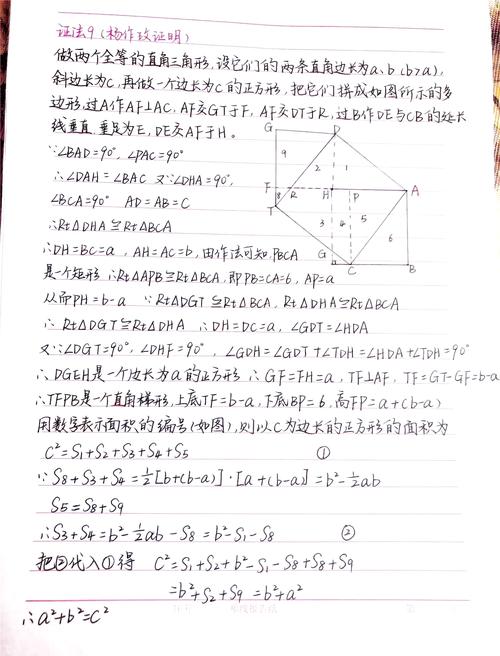 证法9(杨作玫证明)
做两个全等的直角三角形,设它们的两条直角边长为a、b(b>a),
斜边长为C,再做一个边长为C的正方形,把它们拼成如图所示的多
边形,过A作AF⊥AC,AF交GT于F,AF交DT于R,过B作DE与CB的延长
线垂直,垂足为E,DE交AF于H。
∵∠BAD=90°,∠PAC=90°
∴∠DAH=∠BAC 又∵∠DHA=90°,
∠BCA=90° AD=AB=C
∴Rt△DHA≌Rt△BCA
∴DH=BC=a,AH=AC=b,由作法可知,PBCA
是一个矩形∴Rt△APB≌Rt△BCA,即PB=CA=6,AP=a
从而PH=b-a ∵Rt△DGT≌Rt△BCA,Rt△DHA≌Rt△BCA
∴ Rt△DGT≌Rt△DHA ∴DH=DC=a,∠GDT=∠HDA
又∵∠DGT=90°,∠DHF=90°,∠GDH=∠GDT+∠TDH=∠HDA+∠TDH=90°
∴DGEH是一个边长为a的正方形∴GF=FH=a,TF⊥AF,TF=GT-GF=b-a
∴TFPB是一个直角梯形,上底TF=b-a,下底BP=6,高FP=a+(b-a)
用数字表示面积的编号(如图),则以C为边长的正方形的面积为
C²=S1+S2+S3+S4+S5 ①
∵S8+S3+S4=½[b+(b-a)]·[a+(b-a)]=b²-½ab
S5=S8+S9
∴S3+S4=b²-½ab-S8=b²-S1-S8 ②
把②代入①得 C²=S1+S2+b²-S1-S8+S8+S9
=b²+S2+S9=b²+a²
∴a²+b²=C²
G
D
9
2
1
F
8
R
H
P
A
T
3
4
5
6
G
C
B